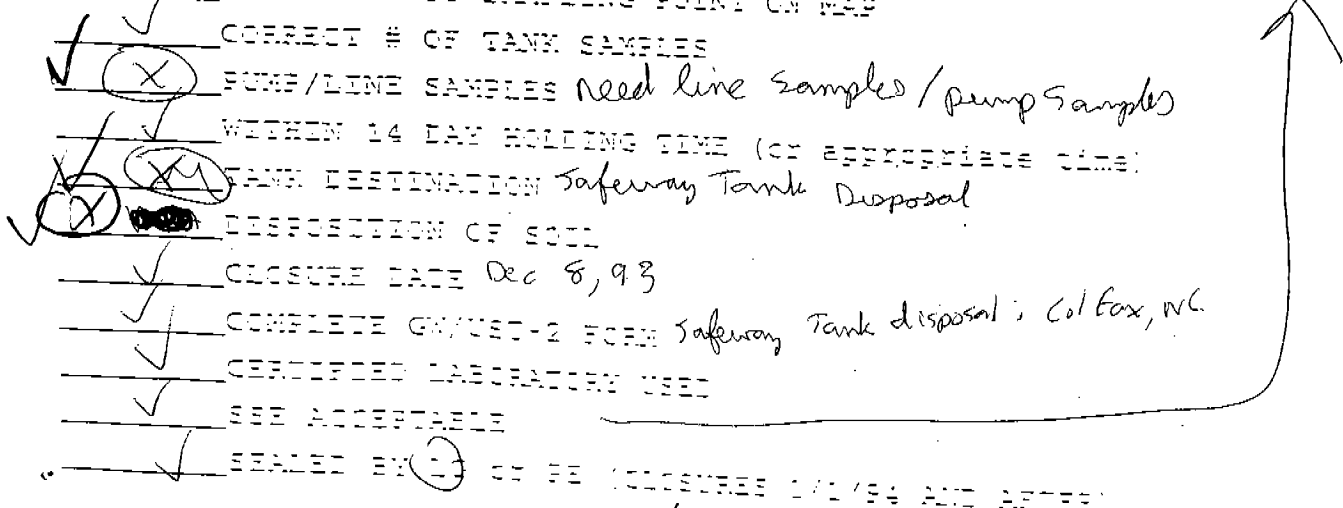 SAMPLING POINT ON MAP
✓ CORRECT # OF TANK SAMPLES
✓ X PUMP/LINE SAMPLES need line samples/pump samples
✓ WITHIN 14 DAY HOLDING TIME (or appropriate time)
✓ X TANK DESTINATION Safeway Tank Disposal
✓ X DISPOSITION OF SOIL
✓ CLOSURE DATE Dec 8, 93
✓ COMPLETE GW/UST-2 FORM Safeway Tank disposal; Colfax, NC.
✓ CERTIFIED LABORATORY USED
✓ SSE ACCEPTABLE
✓ SEALED BY OR PE (CLOSURES 1/1/94 AND AFTER)